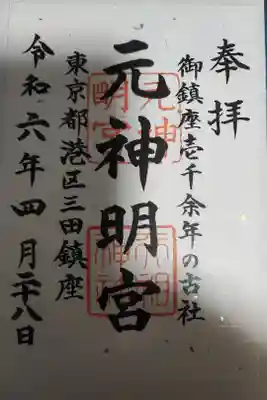 奉拝
御鎮座壱千余年の古社
元神明宮
東京都港区三田鎮座
令和六年四月二十八日
元神明宮